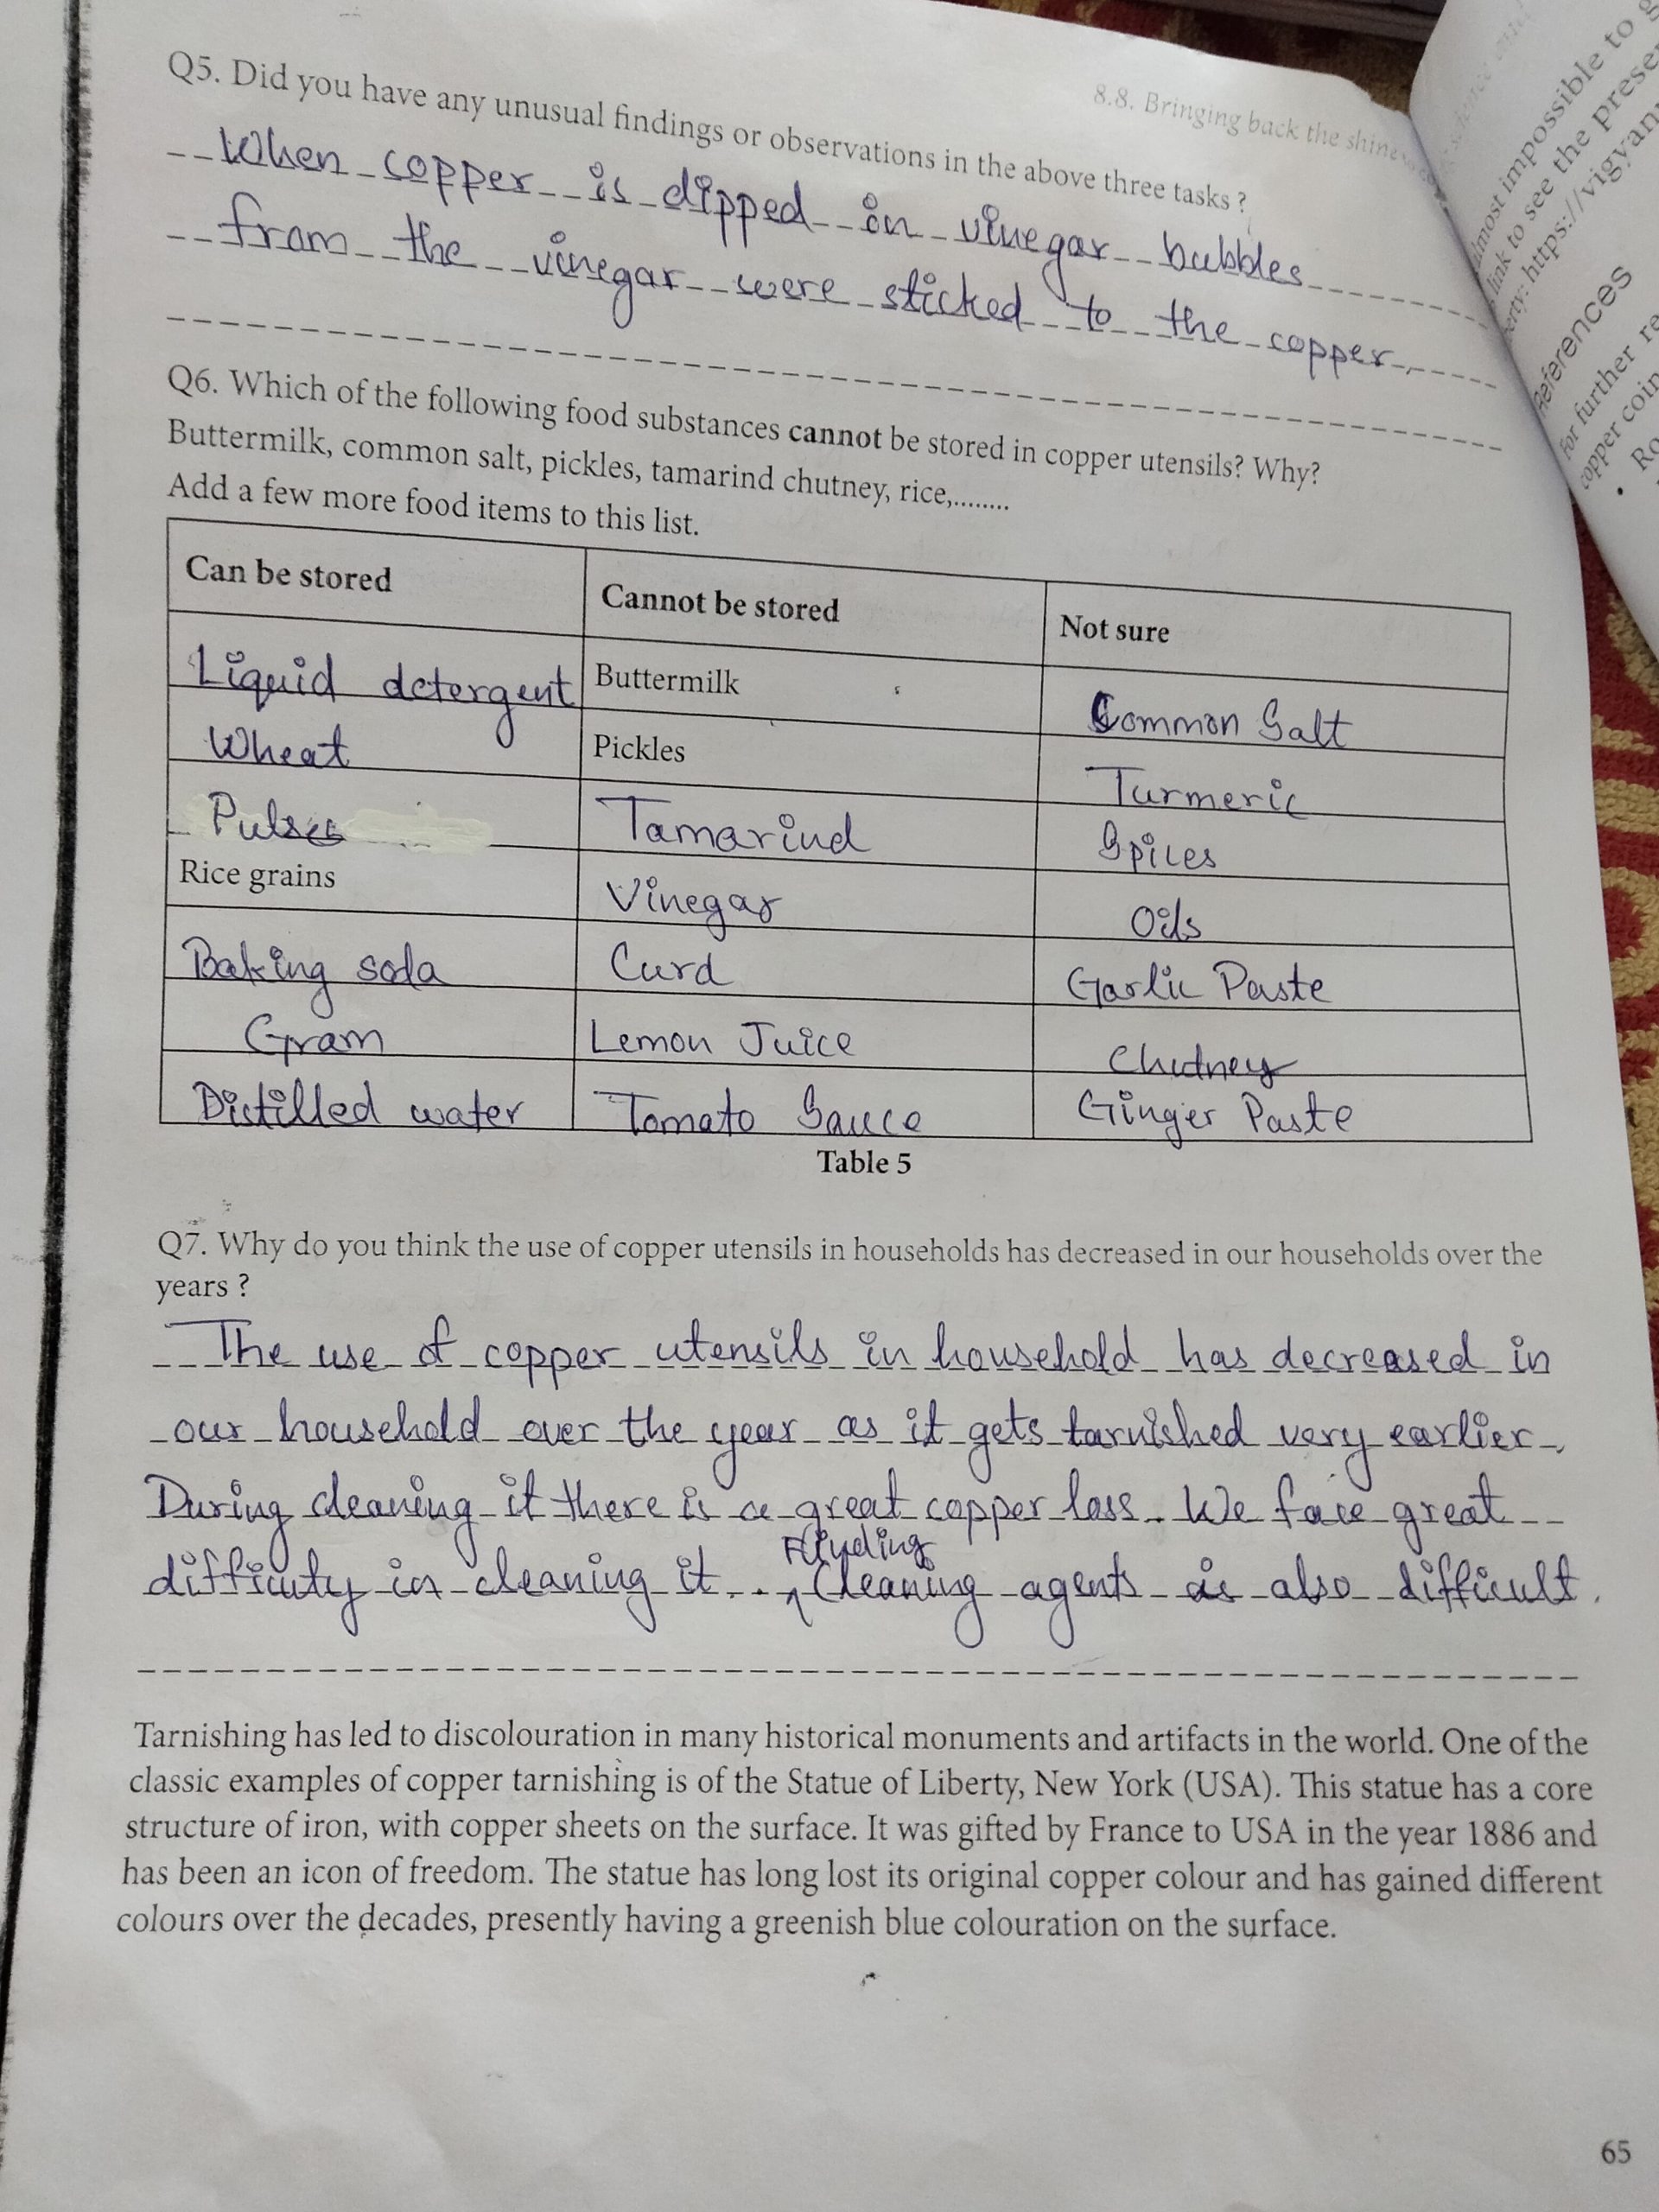 8.8. Bringing back the shine
Q5. Did you have any unusual findings or observations in the above three tasks ?
When copper is dipped in vinegar bubbles
from the vinegar were sticked to the copper.
Q6. Which of the following food substances cannot be stored in copper utensils? Why?
Buttermilk, common salt, pickles, tamarind chutney, rice,........
Add a few more food items to this list.
Can be stored Cannot be stored Not sure
Liquid detergent Buttermilk Common Salt
Wheat Pickles Turmeric
Pulses Tamarind Spices
Rice grains Vinegar Oils
Baking soda Curd Garlic Paste
Gram Lemon Juice Chutney
Distilled water Tomato Sauce Ginger Paste
Table 5
Q7. Why do you think the use of copper utensils in households has decreased in our households over the
years ?
The use of copper utensils in household has decreased in
our household over the year as it gets tarnished very earlier.
During cleaning it there is a great copper loss. We face great
difficuty in cleaning it. Finding Cleaning agents is also difficult.
Tarnishing has led to discolouration in many historical monuments and artifacts in the world. One of the
classic examples of copper tarnishing is of the Statue of Liberty, New York (USA). This statue has a core
structure of iron, with copper sheets on the surface. It was gifted by France to USA in the year 1886 and
has been an icon of freedom. The statue has long lost its original copper colour and has gained different
colours over the decades, presently having a greenish blue colouration on the surface.
65
almost impossible to
link to see the prese
erty: https://vigyan
References
For further re
copper coin
• Ro